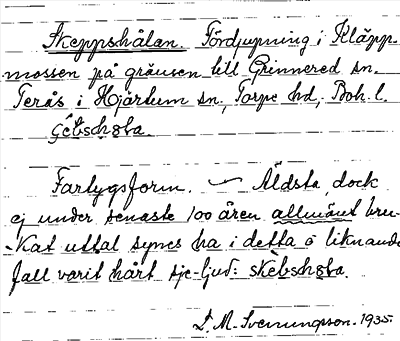 Skeppshålan. Fördjupning i Kläpp-
mossen på gränsen till Grinnered sn.
Terås i Hjärtum sn, Torpe hd, Boh. l.
Fartygsform. — Äldsta, dock
ej under senaste 100 åren allmänt bru-
-kat uttal synes ha i detta o liknande
fall varit hårt sje-ljud: skèbschɘta.
S. M. Svenungson. 1935.